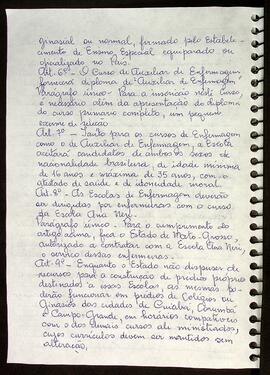 ginasial ou normal, firmado pelo Estabele-
cimento de Ensino, Especial equiparado ou
oficializado no País.
Art. 6º - O Curso de Auxiliar de Enfermagem,
fornecerá diploma de "Auxiliar de Enfermagem
Parágrafo único - Para a inscrição neste Curso,
é necessário além da apresentação do diploma
do curso primário completo, um pequeno
exame de seleção.
Art. 7º - Tanto para os cursos de Enfermagem
como o de Auxiliar de Enfermagem, a Escola
aceitará candidatos de ambos os sexos de
nacionalidade brasileira, de idade mínima
de 16 anos e máxima de 35 anos, com o
atestado de saúde e de idoneidade moral.
Art. 8º - As Escolas de Enfermagem deverão
ser dirigidas por enfermeiras com o curso
da Escola Ana Neri.
Parágrafo único - Para o cumprimento do
artigo acima, fica o Estado de Mato-Grosso,
autorizado a contratar com a Escola Ana Neri,
o serviço dessas enfermeiras.
Art. 9º - Enquanto o Estado não dispuser de
recursos para a construção de prédios próprios
destinados a essas Escolas, as mesmas po-
derão funcionar em prédios de Colégios ou
Ginásios das cidades de Cuiabá, Corumbá
e Campo-Grande, em horários compatíveis
com o dos demais cursos ali ministrados,
cujos currículos devem ser mantidos sem
alteração.